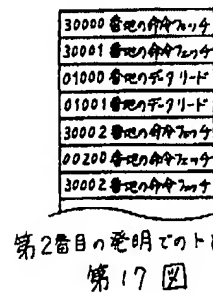 30000 番地の命令フェッチ
30001 番地の命令フェッチ
01000 番地のデータリード
01001 番地のデータリード
30002 番地の命令フェッチ
00200 番地の命令フェッチ
30002 番地の命令フェッチ
第2番目の発明でのト
第17図